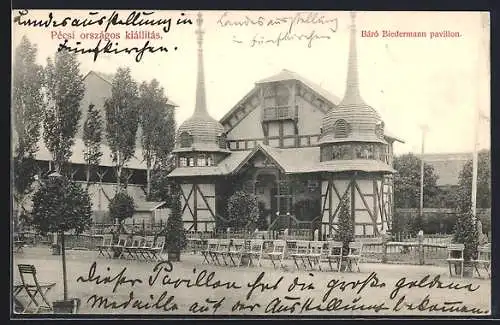 Landes-ausstellung in
Pécsi országos kiállítás.
Fünfkirchen.
Landes-ausstellung
in Fünfkirchen.
Báró Biedermann pavillon.
Dieser Pavillon hat die große goldene
Medaille auf der Ausstellung bekommen.